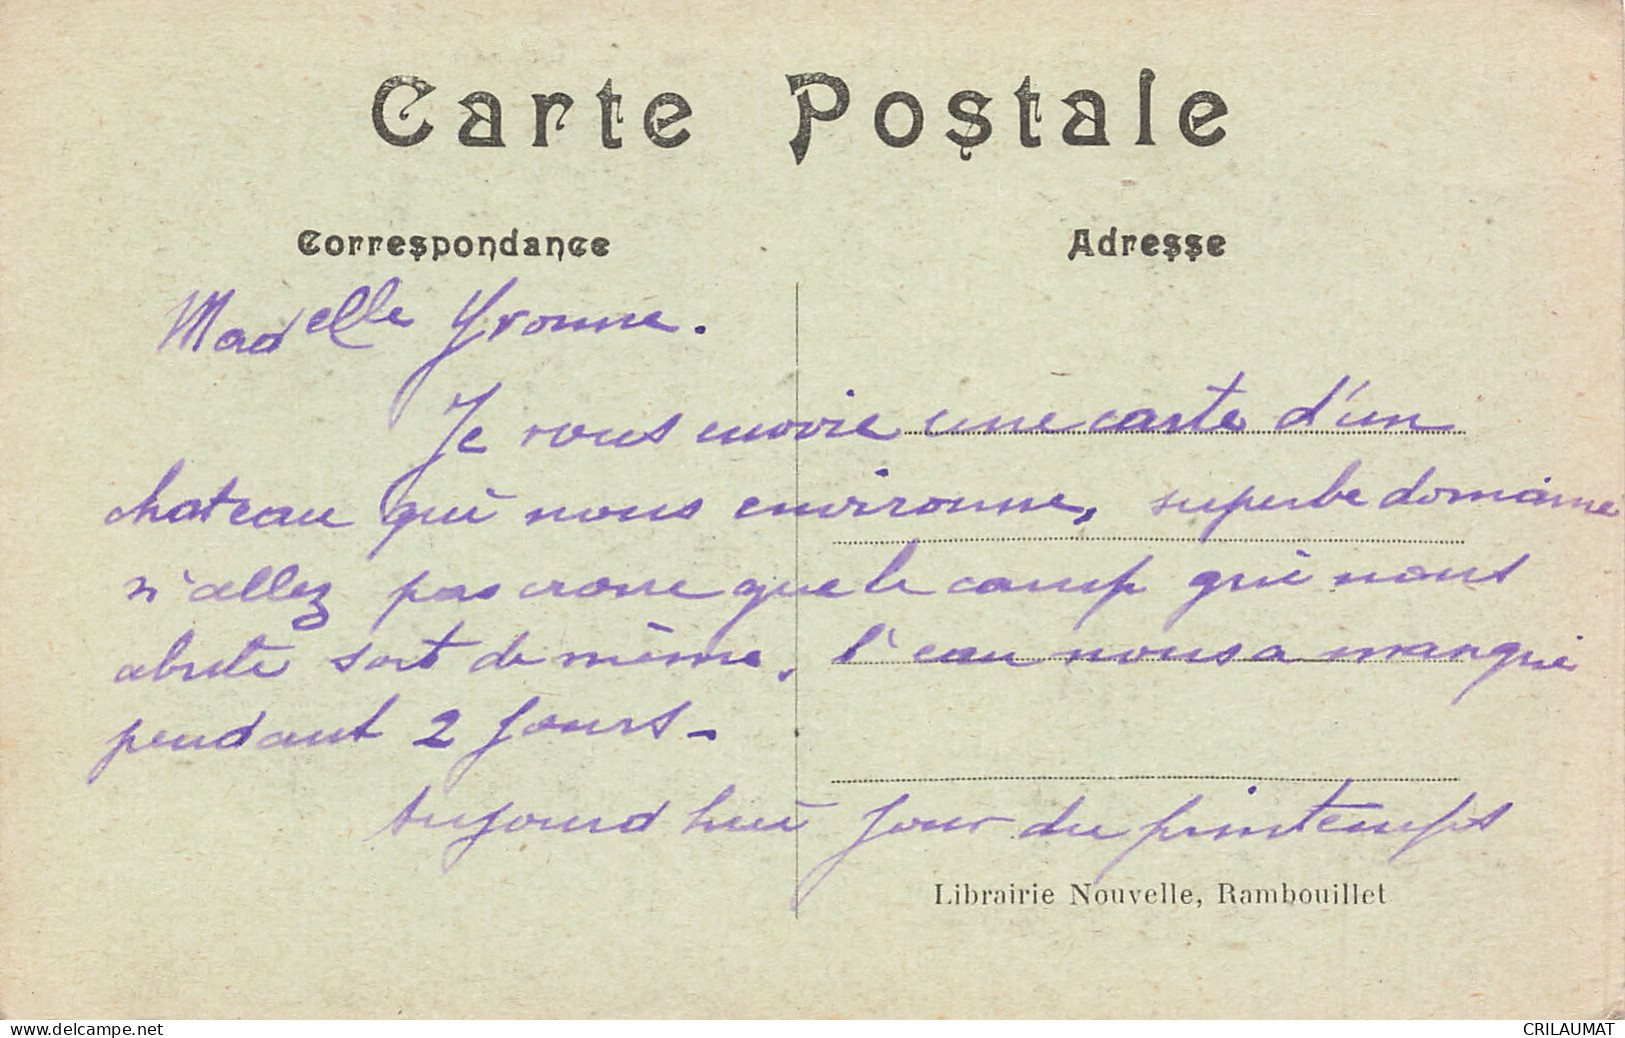 Carte Postale
Correspondance
Adresse
Madelle Yvonne.
Je vous envoie une carte d'un
chateau qui nous environne, superbe domaine
n'allez pas croire que le camp qui nous
abrite soit de même, l'eau nous a manqué
pendant 2 jours -
Aujourd hui jour du printemps
Librairie Nouvelle, Rambouillet
www.delcampe.net
CRILAUMAT